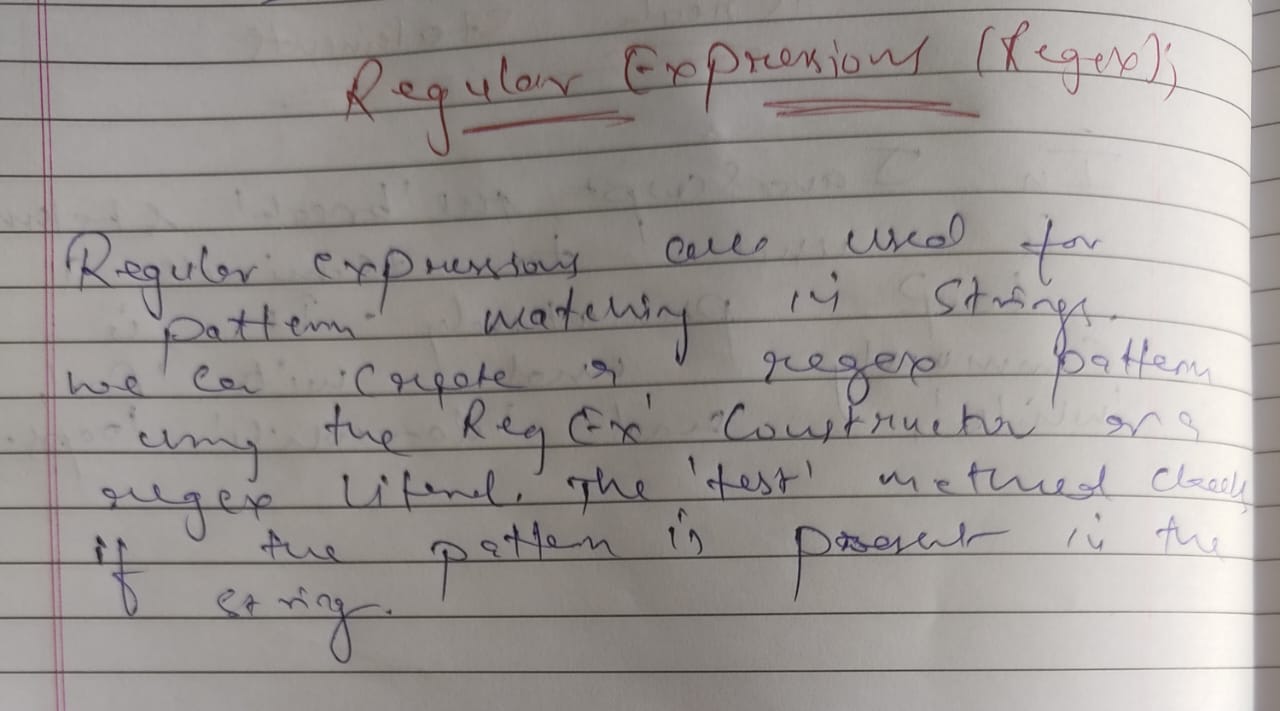 Regular Expressions (Regex);
Regular expressions are used for
pattern matching in strings.
we can create a regex pattern
using the RegEx' Constructor or a
regex literal. The 'test' method checks
if the pattern is present in the
string.